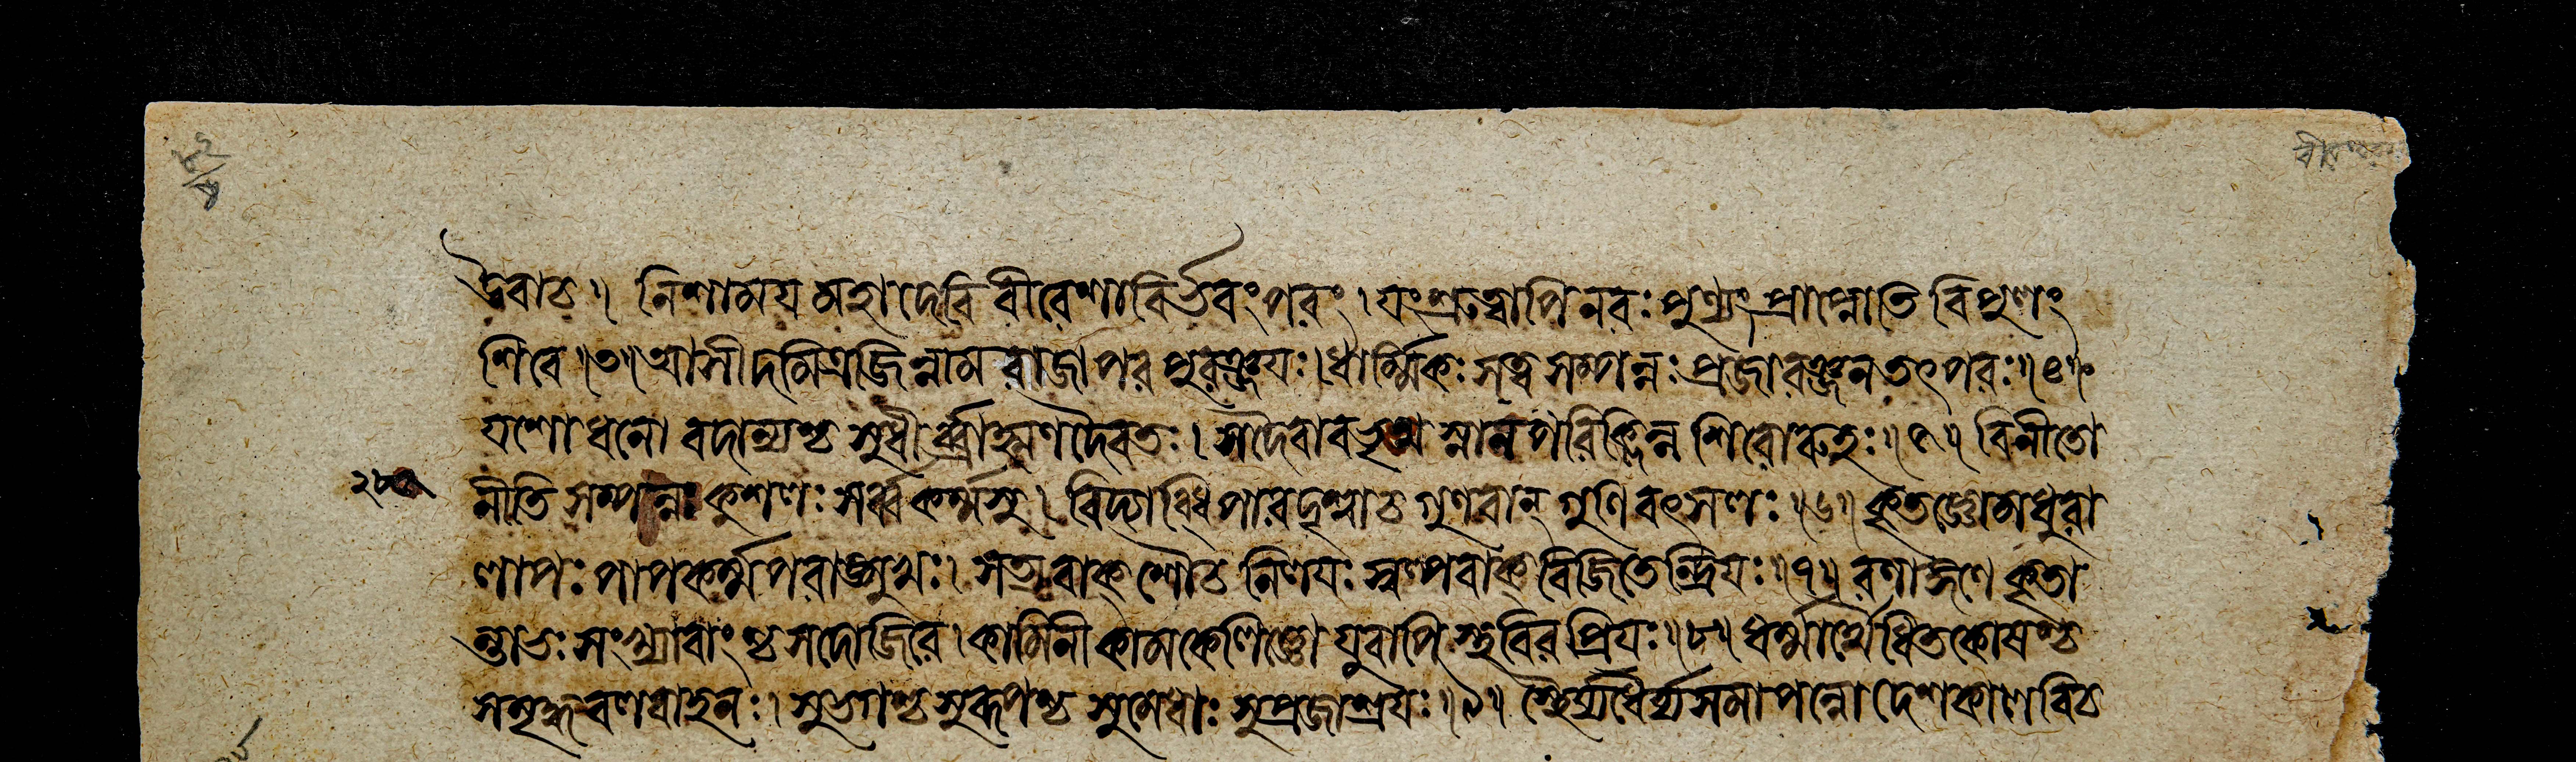 শ্রৈবাচ॥ নিশাময মহাদেবি বীরেশাবির্ভবংপরং।যংশ্রুত্বাপিনরঃ পুণ্যং প্রাপ্নোতি বিপুলং
শিবে॥৩॥আসীদমিত্রজিন্নাম রাজাপরপুরঞ্জযঃ।ধার্ম্মিকঃ সত্ব সম্পন্নঃ প্রজারঞ্জনতৎপরঃ॥৪॥
যশোধনো বদান্যশ্চ সুধীর্ব্রাহ্মণদৈবতঃ। সদৈবাবভৃথ স্নান পরিক্লিন্ন শিরোরুহঃ॥৫॥ বিনীতো
২৮
নীতি সম্পন্নঃ কুশলঃ সর্ব্বকর্ম্মসু। বিদ্যাব্ধিপারদৃশ্বাচ গুণবান্ গুণিবৎসলঃ॥৬॥ কৃতজ্ঞোমধুরা
লাপঃ পাপকর্ম্মপরাঙ্মুখঃ। সত্যবাক্ শৌচ নিলযঃ স্বল্পবাক্ বিজিতেন্দ্রিযঃ॥৭॥ রণাঙ্গণে কৃতা
ন্তাভঃ সংখ্যাবাংশ্চ সদোজিরে।কামিনীকামকেলিজ্ঞো যুবাপি স্থবিরপ্রিযঃ॥৮॥ ধর্ম্মার্থৈধিতকোষশ্চ
সমৃদ্ধবলবাহনঃ। সুভগশ্চ সুরূপশ্চ সুমেধাঃ সুপ্রজাশ্রযঃ॥৯॥ স্থৈর্য্যধৈর্য্যসমাপন্নো দেশকালবিচ